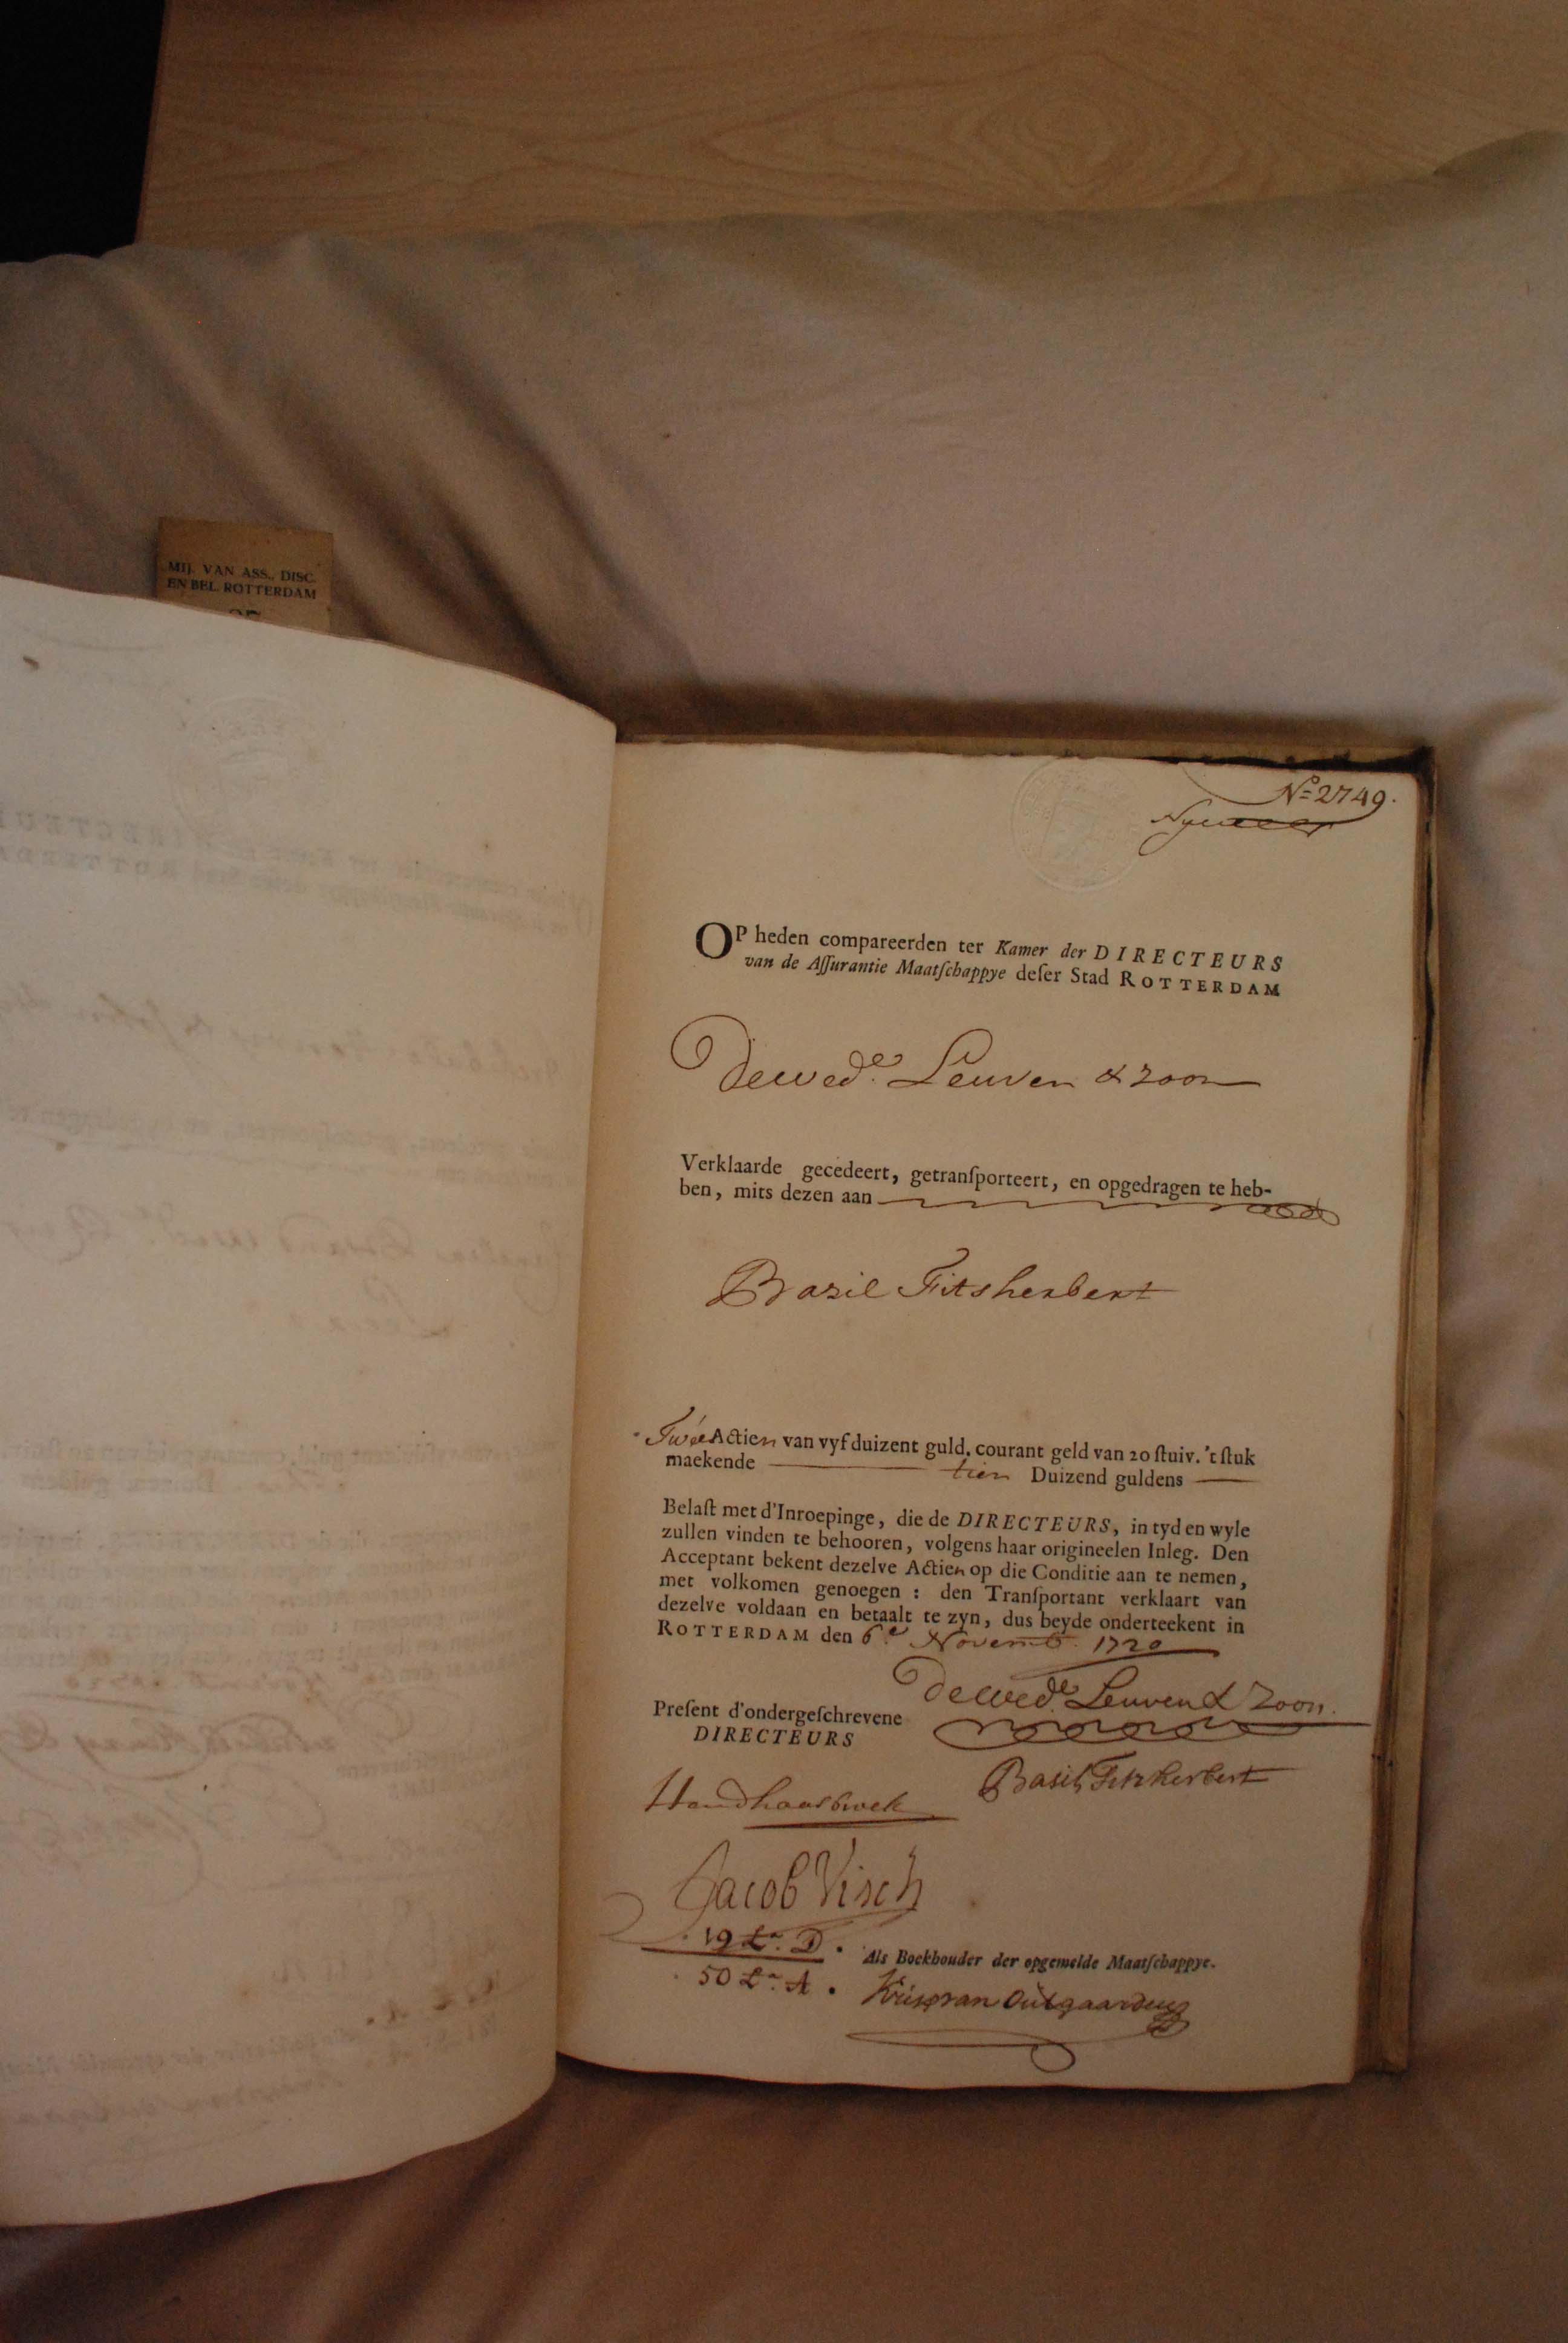 MIJ. VAN ASS., DISC.
EN BEL. ROTTERDAM
No 2749.
OP heden compareerden ter Kamer der DIRECTEURS
van de Aſſurantie Maatſchappye deſer Stad ROTTERDAM
De wede. Leuven & zoon
Verklaarde gecedeert, getranſporteert, en opgedragen te heb-
ben, mits dezen aan
Bazil Fitsherbert
Twee Actien van vyf duizent guld. courant geld van 20 ſtuiv. 't ſtuk
maekende tien Duizend guldens
Belaſt met d'Inroepinge, die de DIRECTEURS, in tyd en wyle
zullen vinden te behooren, volgens haar origineelen Inleg. Den
Acceptant bekent dezelve Actien op die Conditie aan te nemen,
met volkomen genoegen : den Tranſportant verklaart van
dezelve voldaan en betaalt te zyn, dus beyde onderteekent in
ROTTERDAM den 6e Novemb. 1720
De wede. Leuven & Zoon.
Preſent d'ondergeſchrevene
DIRECTEURS
Basil Fitzherbert
Jacob Visch
19 La. D.
Als Boekhouder der opgemelde Maatſchappye.
50 La. A.